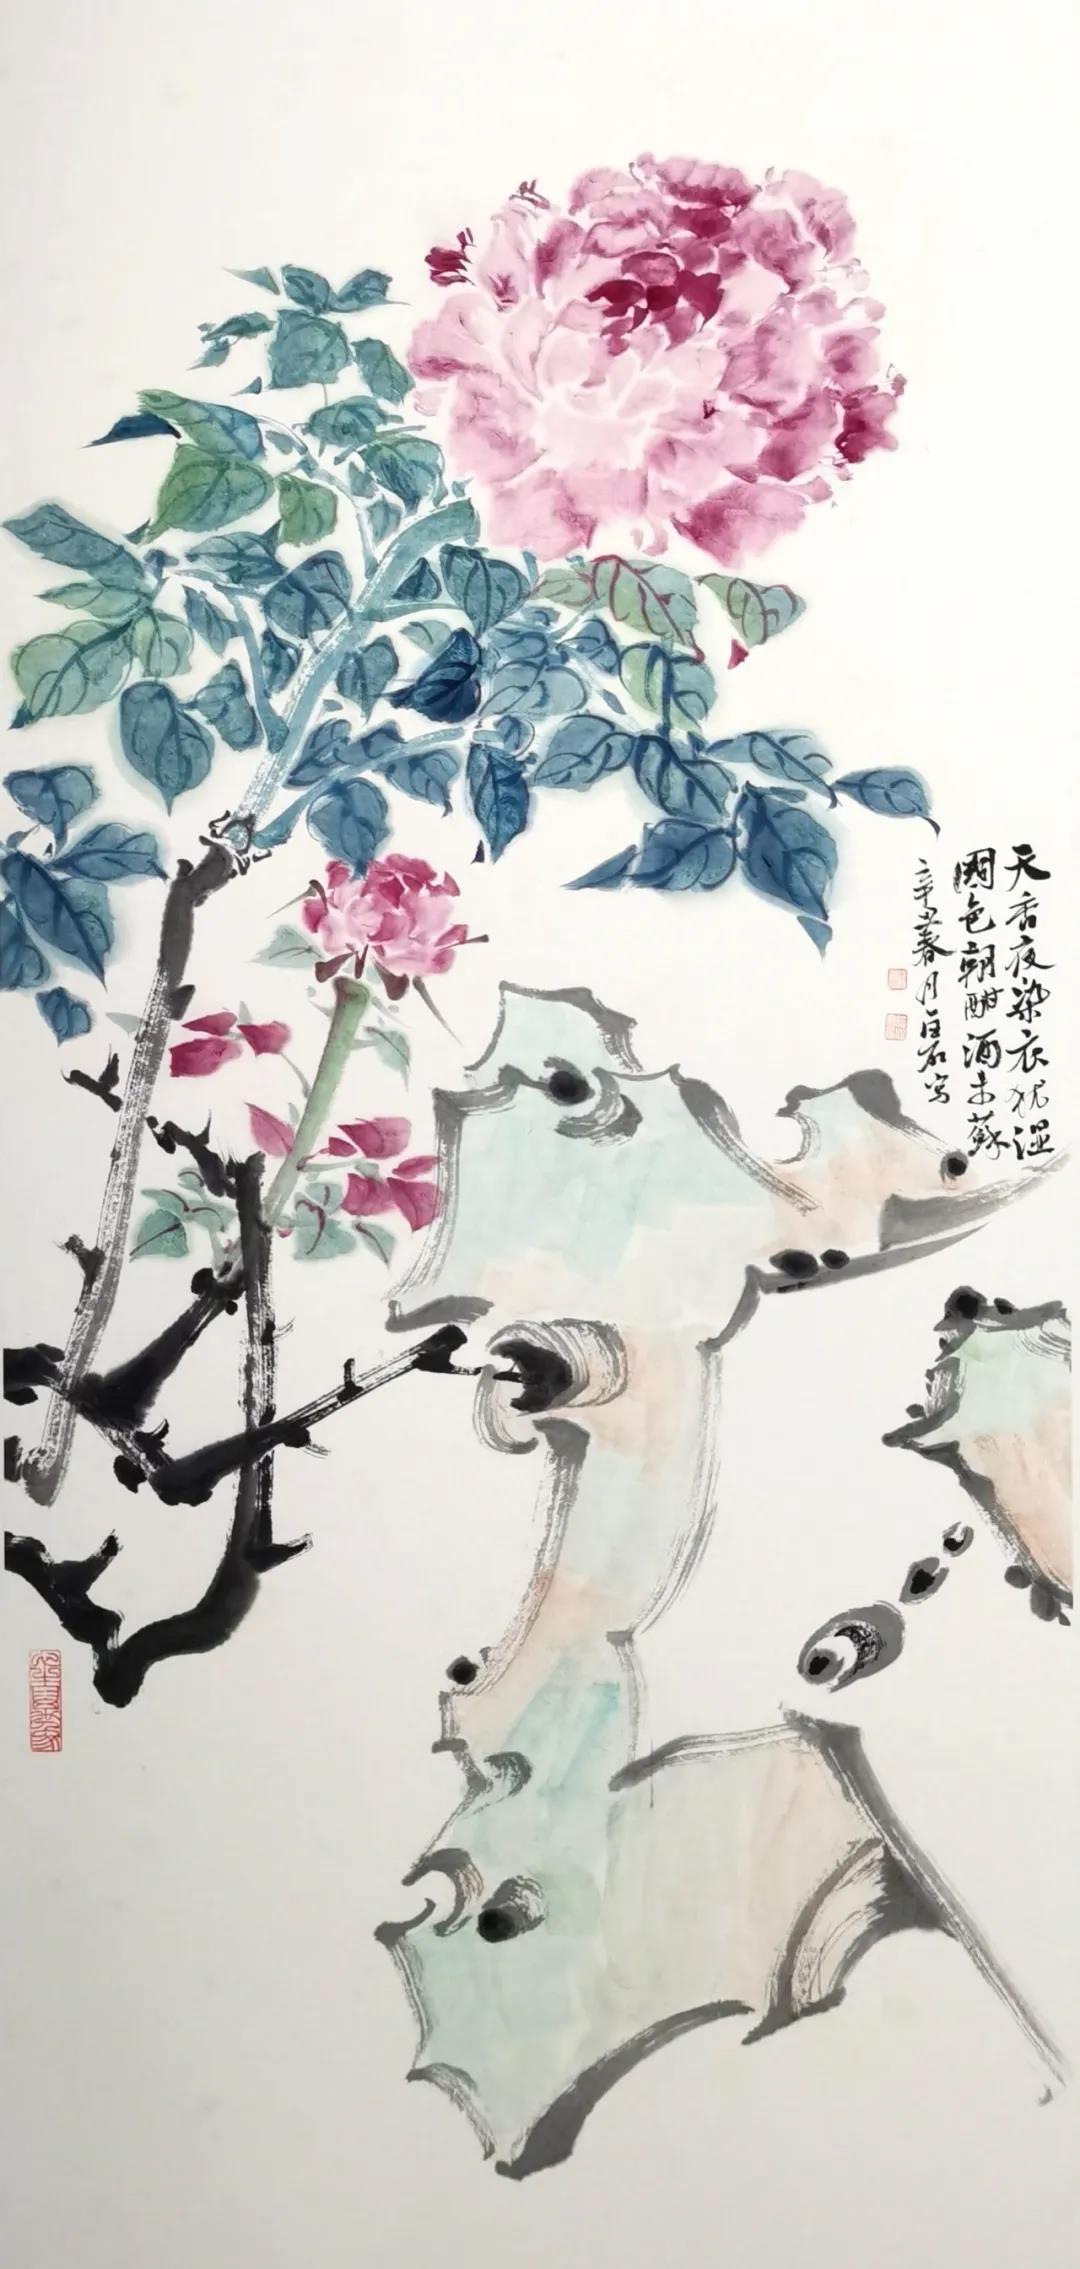 天香夜染衣犹湿
國色朝酣酒未蘇
辛丑春月百石写